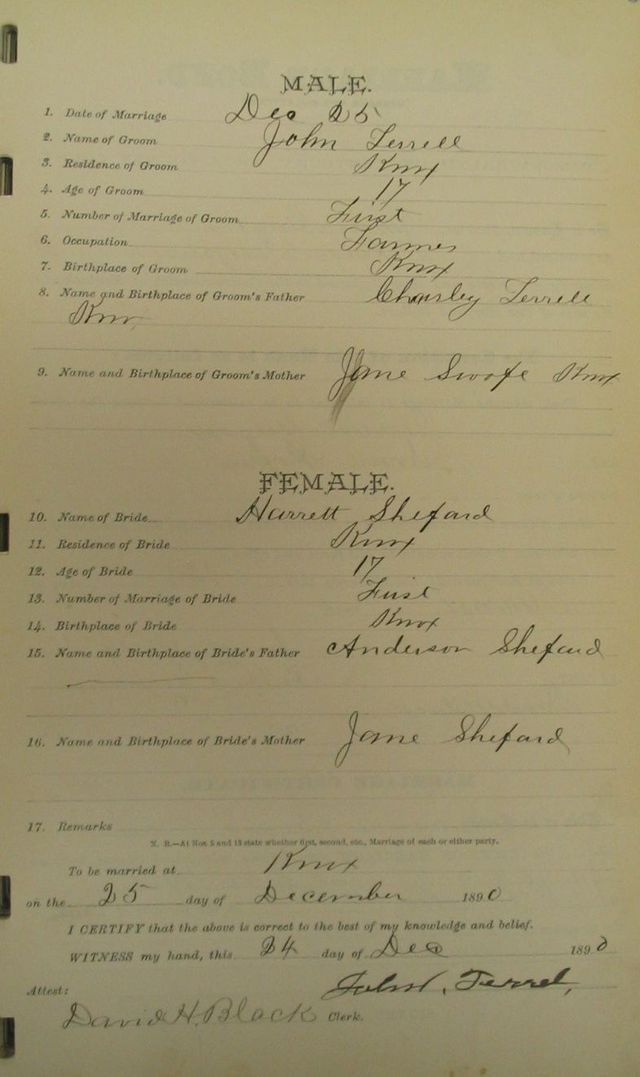 MALE.
1. Date of Marriage Dec 25
2. Name of Groom John Terrell
3. Residence of Groom Knox
4. Age of Groom 17
5. Number of Marriage of Groom First
6. Occupation Farmer
7. Birthplace of Groom Knox
8. Name and Birthplace of Groom's Father Chesley Terrell
Knox
9. Name and Birthplace of Groom's Mother Jane Swofe Knox
FEMALE.
10. Name of Bride Harrett Shefard
11. Residence of Bride Knox
12. Age of Bride 17
13. Number of Marriage of Bride First
14. Birthplace of Bride Knox
15. Name and Birthplace of Bride's Father Anderson Shefard
16. Name and Birthplace of Bride's Mother Jane Shefard
17. Remarks
N. B.—At Nos. 5 and 13 state whether first, second, etc., Marriage of each or either party.
To be married at Knox
on the 25 day of December 1890
I CERTIFY that the above is correct to the best of my knowledge and belief.
WITNESS my hand, this 24 day of Dec 1890
John, Terrel,
Attest:
David H. Black Clerk.